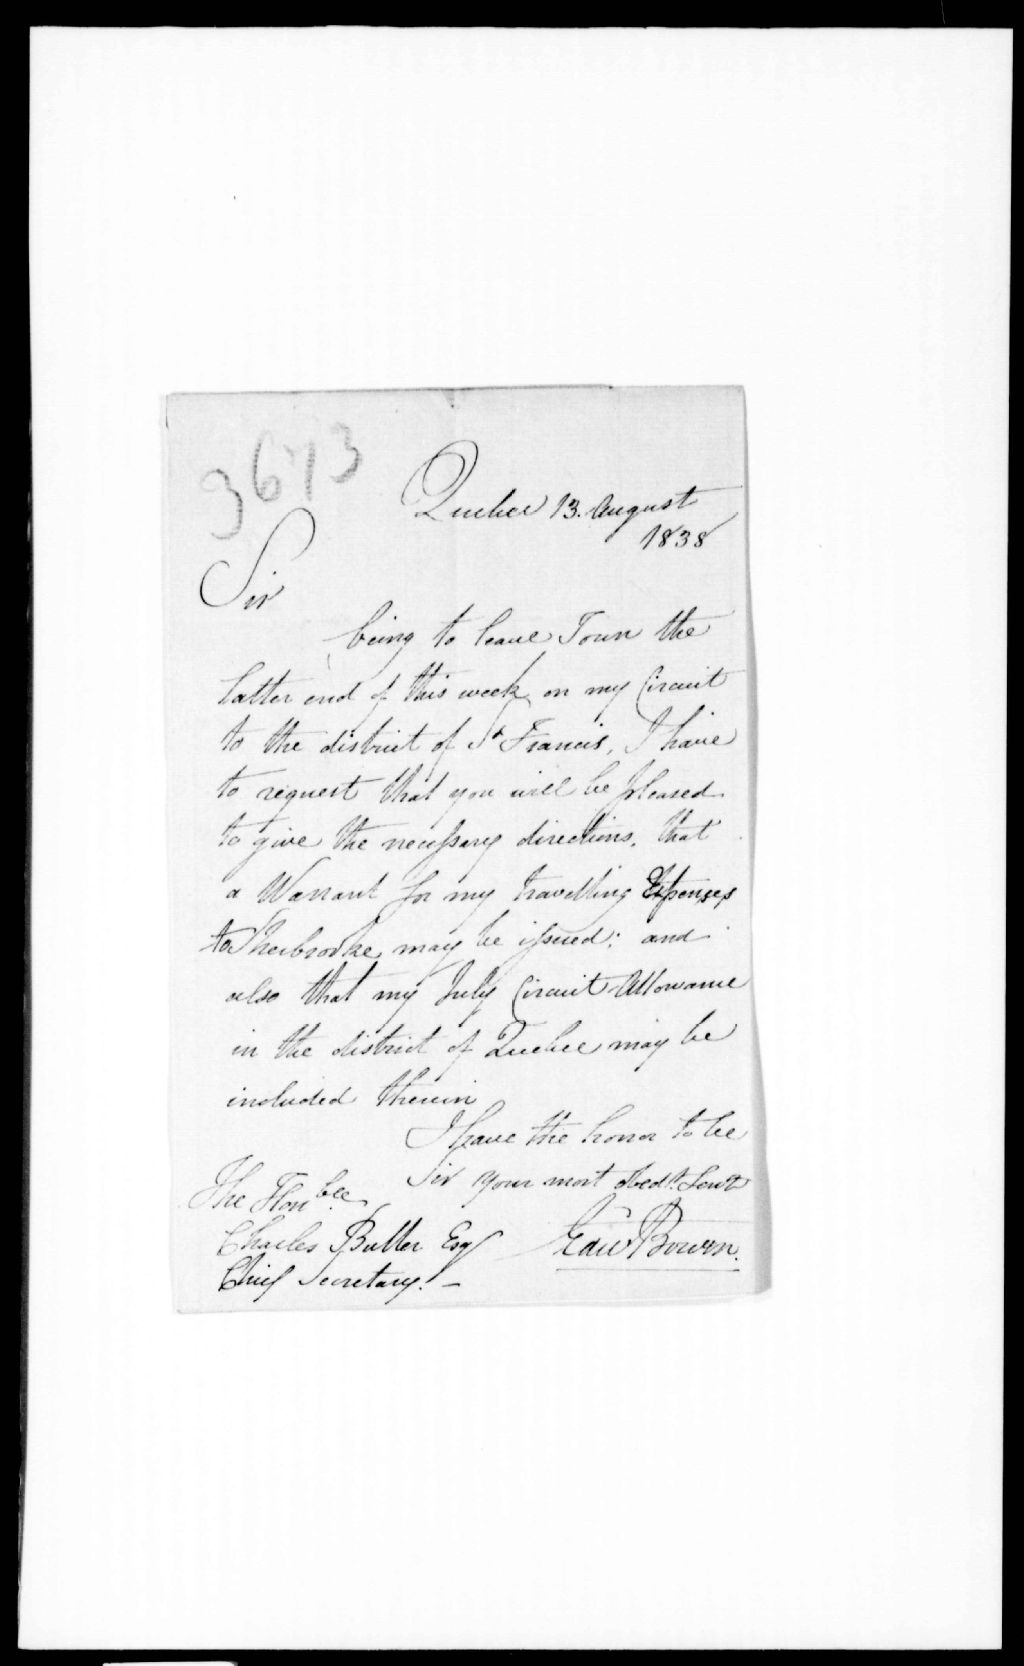 3673
Quebec 13. August
1838
Sir
being to leave Town the
latter end of this week on my Circuit
to the district of St Francis, I have
to request that you will be pleased
to give the necessary directions, that
a Warrant for my travelling Expenses
to Sherbrooke may be issued; and
also that my July Circuit Allowance
in the district of Quebec may be
included therein
I have the honor to be
Sir Your most obedt. Servt
The Honble
Charles Buller Esq
Edw Bowen.
Chief Secretary. –